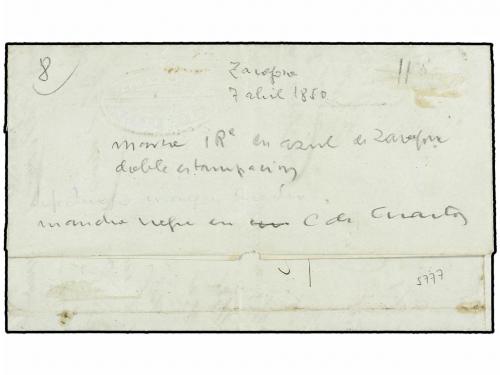 8
Zaragoza
11
7 abril 1850
marca 1 Rs en azul de Zaragoza
doble estampacion
mancha negra en C de Cuartos
5777